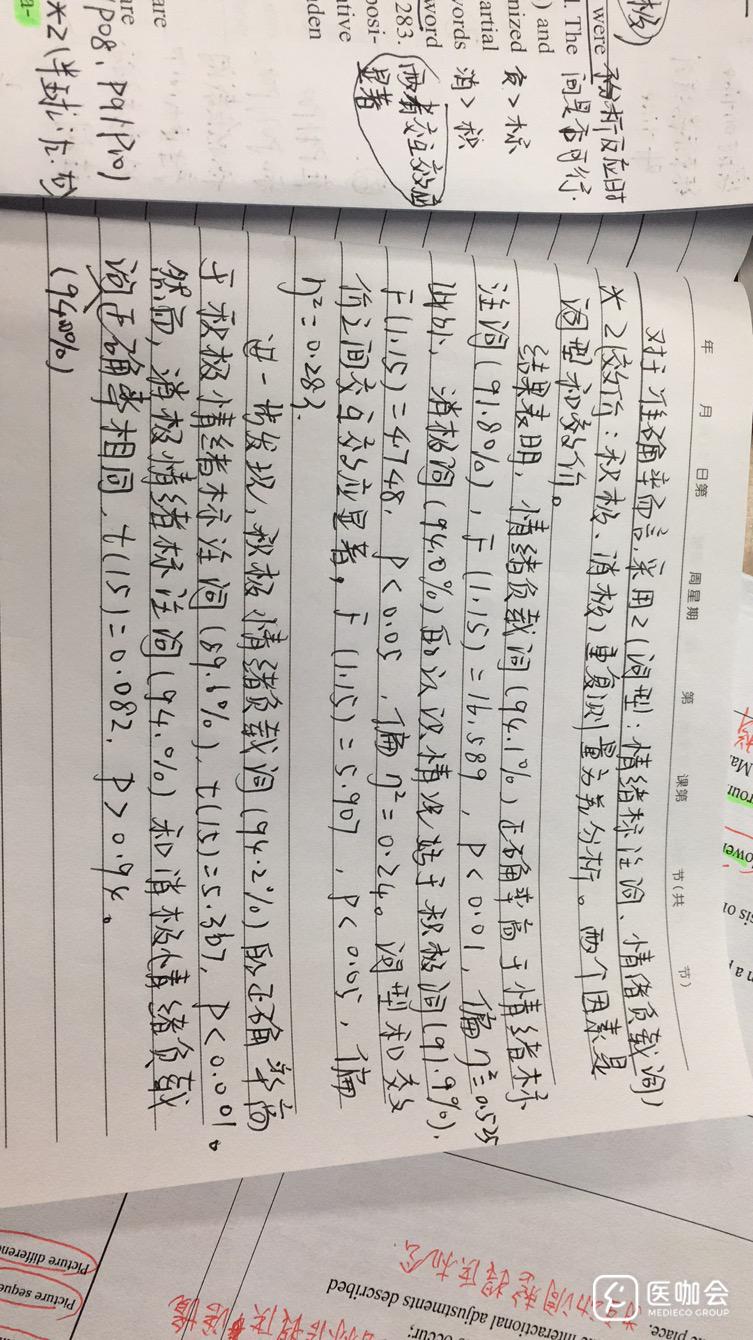 年 月 日第 周星期 第 课第 节(共 节)
对于准确率而言,采用2(词型:情绪标注词、情绪负载词)
*2(效价:积极、消极)重复测量方差分析。两个因素是
词型和效价。
结果表明,情绪负载词(94.1%)正确率高于情绪标
注词(91.8%),F(1.15)=16.589,P<0.01,偏η²=0.525
此外,消极词(94.0%)的认识情况好于积极词(91.9%),
F(1.15)=4.748,P<0.05,偏η²=0.24。词型和效
价之间交互效应显著,F(1.15)=5.907,P<0.05,偏
η²=0.283.
进一步发现,积极情绪负载词(94.2%)的正确率高
于积极情绪标注词(89.6%),t(15)=5.367,P<0.001。
然而,消极情绪标注词(94.0%)和消极情绪负载
词正确率相同,t(15)=0.082,P>0.94。
(94.0%)
极)
were 不分析反应时
. The 间是否可行.
) and
nized 负>标
artial
words 消>积
word
283. 两者交互效应
posi- 显著
ative
nden
are
are
/PO8, P9/P10)
*2(半球:左.右)
a-
Ma
our
ower
sis of
n a p
place.
e interactional adjustments described
occur;
Picture differen
Picture seque
医咖会
MEDIECO GROUP